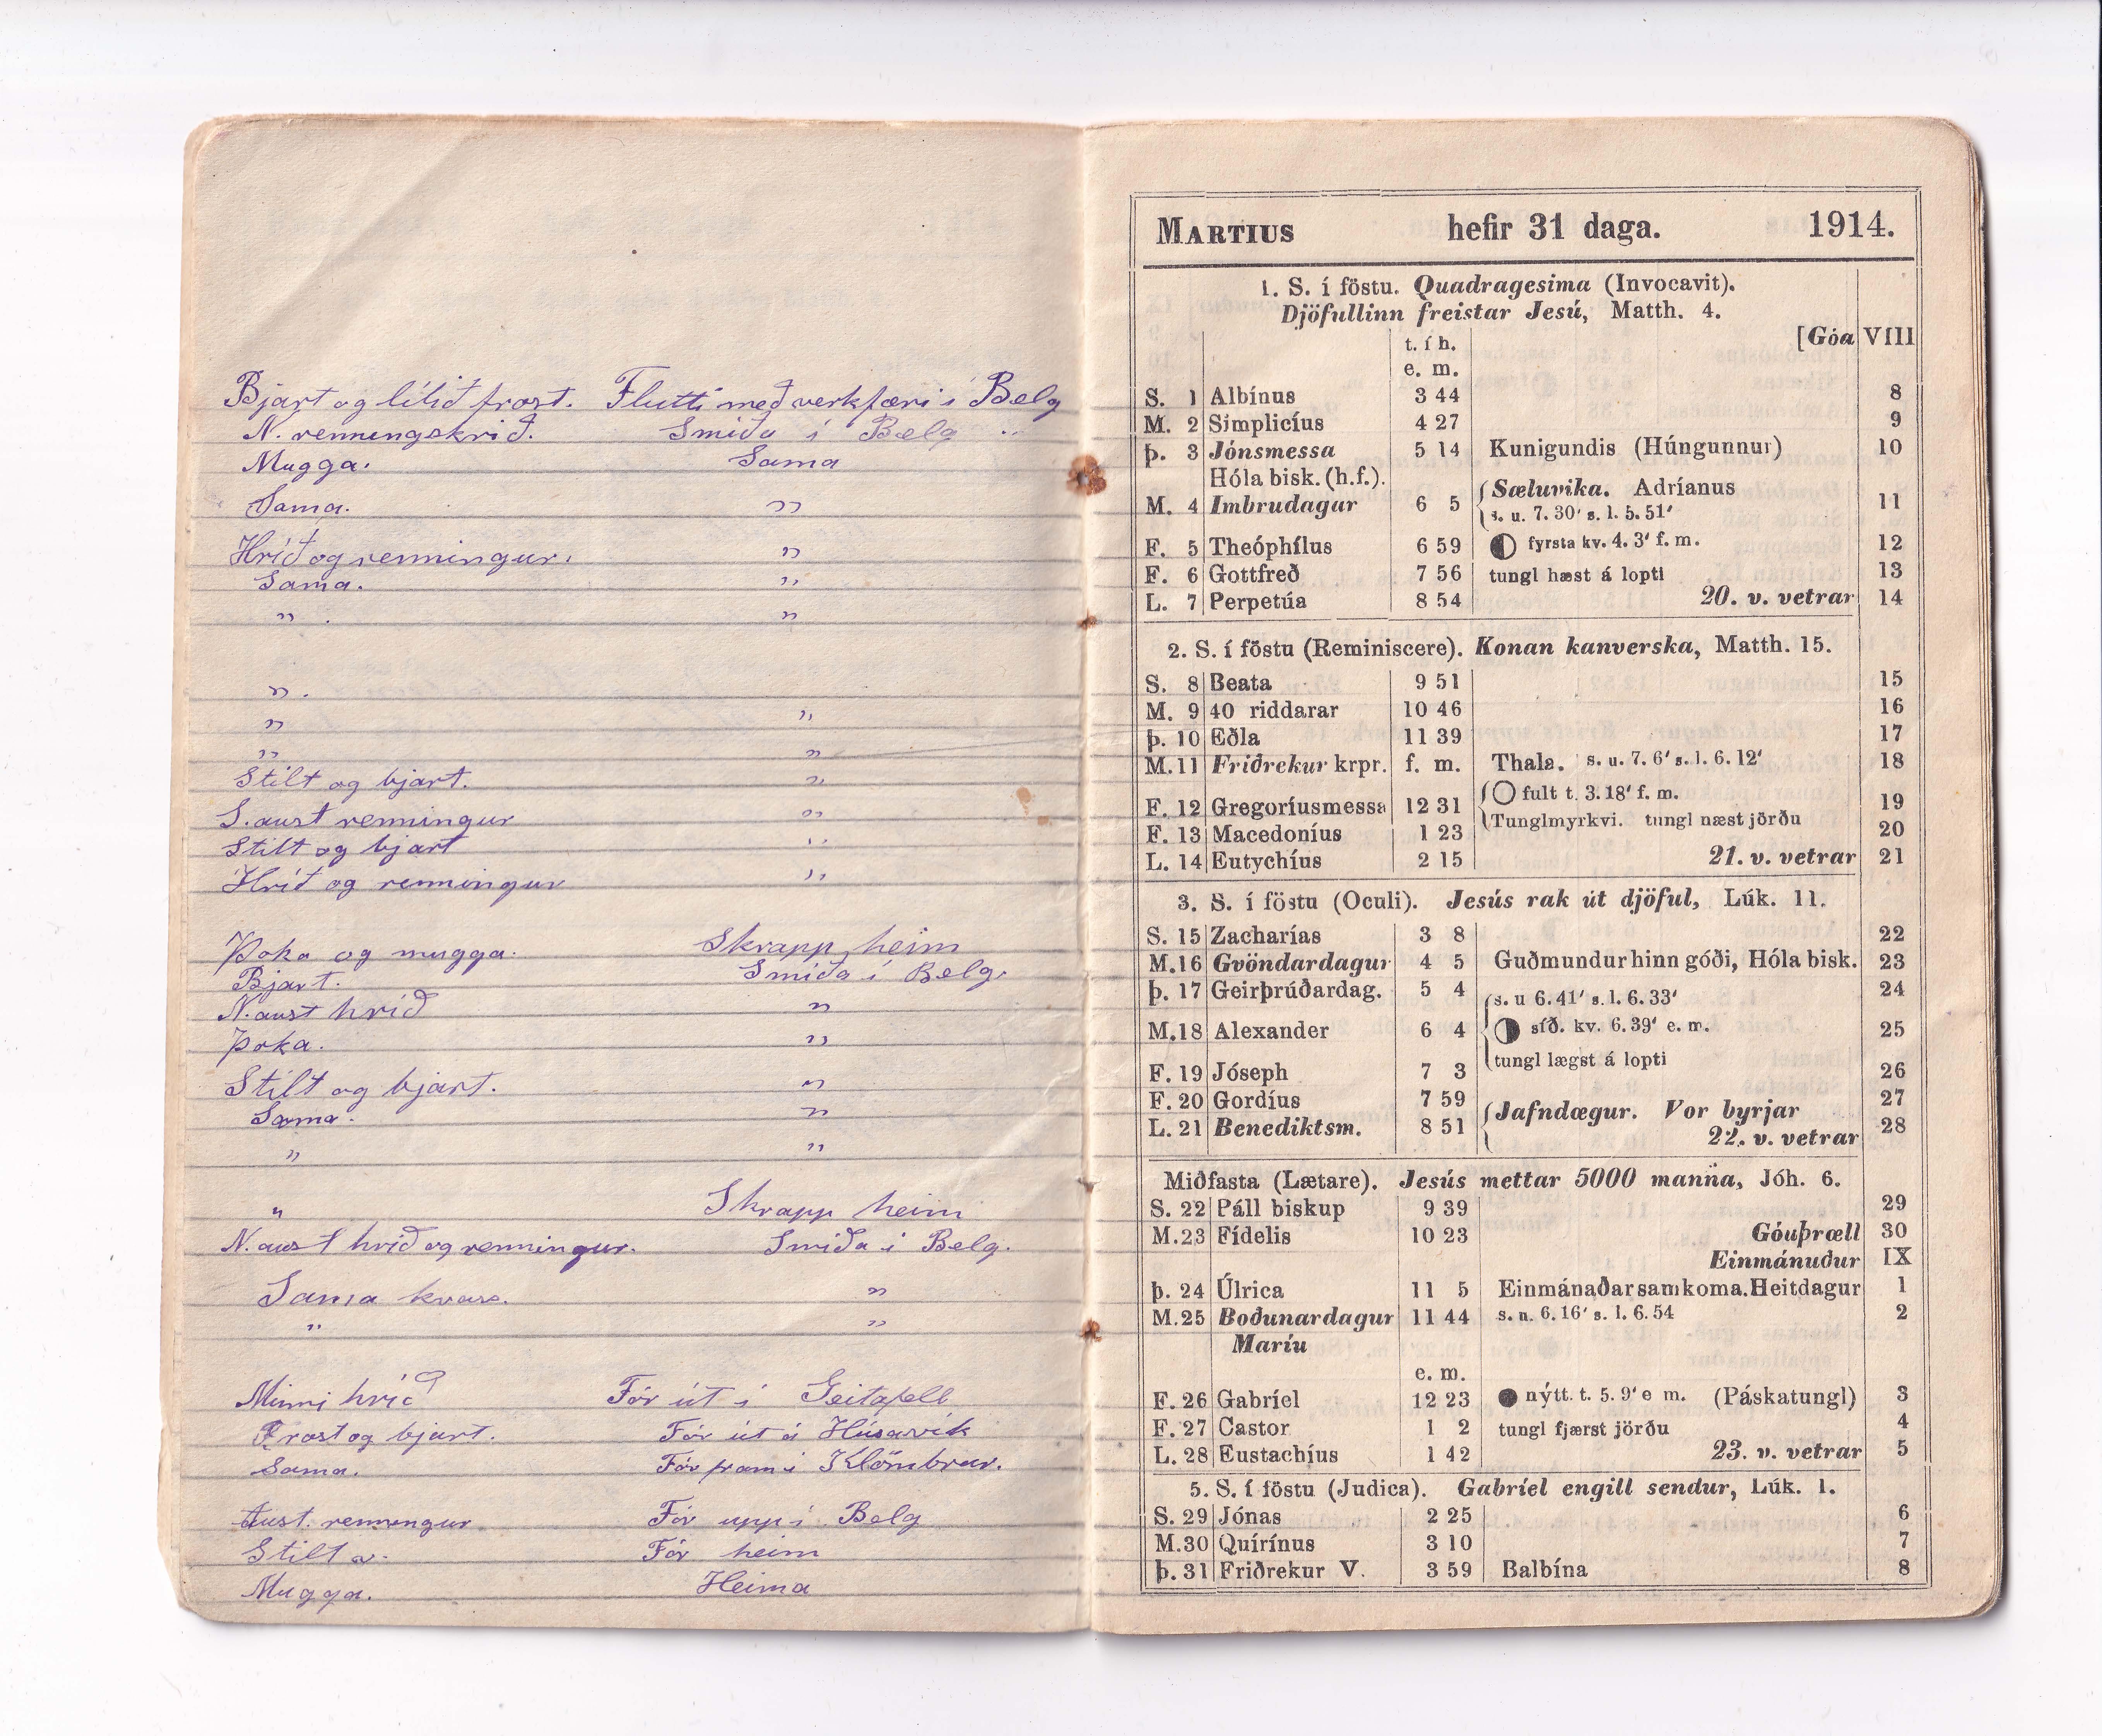 Bjart og lítið frost. Flutti með verkfæri í Belg
N. renningskrið. Smíða í Belg "
Mugga. Sama
Sama. "
Hríð og renningur. "
Sama. "
" . "
" .
" "
" "
Stilt og bjart. "
S. aust renningur "
Stilt og bjart "
Hríð og renningur "
Þoka og mugga. Skrapp heim
Bjart. Smíða í Belg.
N. aust hríð "
Þoka. "
Stilt og bjart. "
Sama. "
" "
" Skrapp heim
N. aust hríð og renningur. Smíða í Belg.
Sama "
" "
Minni hríð Fór út í Geitafell
Frost og bjart. Fór út á Húsavík
Sama. Fór fram í Klömbrur.
Aust. renningur Fór upp í Belg
Stilt Fór heim
Mugga. Heima
MARTIUS hefir 31 daga. 1914.
1. S. í föstu. Quadragesima (Invocavit).
Djöfullinn freistar Jesú, Matth. 4.
t. í h. [Góa VIII
e. m.
S. 1 Albínus 3 44 8
M. 2 Simplicíus 4 27 9
Þ. 3 Jónsmessa 5 14 Kunigundis (Húngunnur) 10
Hóla bisk. (h.f.).
M. 4 Imbrudagur 6 5 Sæluvika. Adríanus 11
s. u. 7. 30' s. l. 5. 51'
F. 5 Theóphílus 6 59 fyrsta kv. 4. 3' f. m. 12
F. 6 Gottfreð 7 56 tungl hæst á lopti 13
L. 7 Perpetúa 8 54 20. v. vetrar 14
2. S. í föstu (Reminiscere). Konan kanverska, Matth. 15.
S. 8 Beata 9 51 15
M. 9 40 riddarar 10 46 16
Þ. 10 Eðla 11 39 17
M. 11 Friðrekur krpr. f. m. Thala. s. u. 7. 6' s. l. 6. 12' 18
F. 12 Gregoríusmessa 12 31 fult t. 3. 18' f. m. 19
F. 13 Macedoníus 1 23 Tunglmyrkvi. tungl næst jörðu 20
L. 14 Eutychíus 2 15 21. v. vetrar 21
3. S. í föstu (Oculi). Jesús rak út djöful, Lúk. 11.
S. 15 Zacharías 3 8 22
M. 16 Gvöndardagur 4 5 Guðmundur hinn góði, Hóla bisk. 23
Þ. 17 Geirþrúðardag. 5 4 s. u 6. 41' s. l. 6. 33' 24
M. 18 Alexander 6 4 síð. kv. 6. 39' e. m. 25
tungl lægst á lopti
F. 19 Jóseph 7 3 26
F. 20 Gordíus 7 59 Jafndægur. Vor byrjar 27
L. 21 Benediktsm. 8 51 22. v. vetrar 28
Miðfasta (Lætare). Jesús mettar 5000 manna, Jóh. 6.
S. 22 Páll biskup 9 39 29
M. 23 Fídelis 10 23 Góuþræll 30
Einmánuður IX
Þ. 24 Úlrica 11 5 Einmánaðarsamkoma. Heitdagur 1
M. 25 Boðunardagur 11 44 s. u. 6. 16' s. l. 6. 54 2
Maríu
e. m.
F. 26 Gabríel 12 23 nýtt. t. 5. 9' e m. (Páskatungl) 3
F. 27 Castor 1 2 tungl fjærst jörðu 4
L. 28 Eustachíus 1 42 23. v. vetrar 5
5. S. í föstu (Judica). Gabríel engill sendur, Lúk. 1.
S. 29 Jónas 2 25 6
M. 30 Quírínus 3 10 7
Þ. 31 Friðrekur V. 3 59 Balbína 8